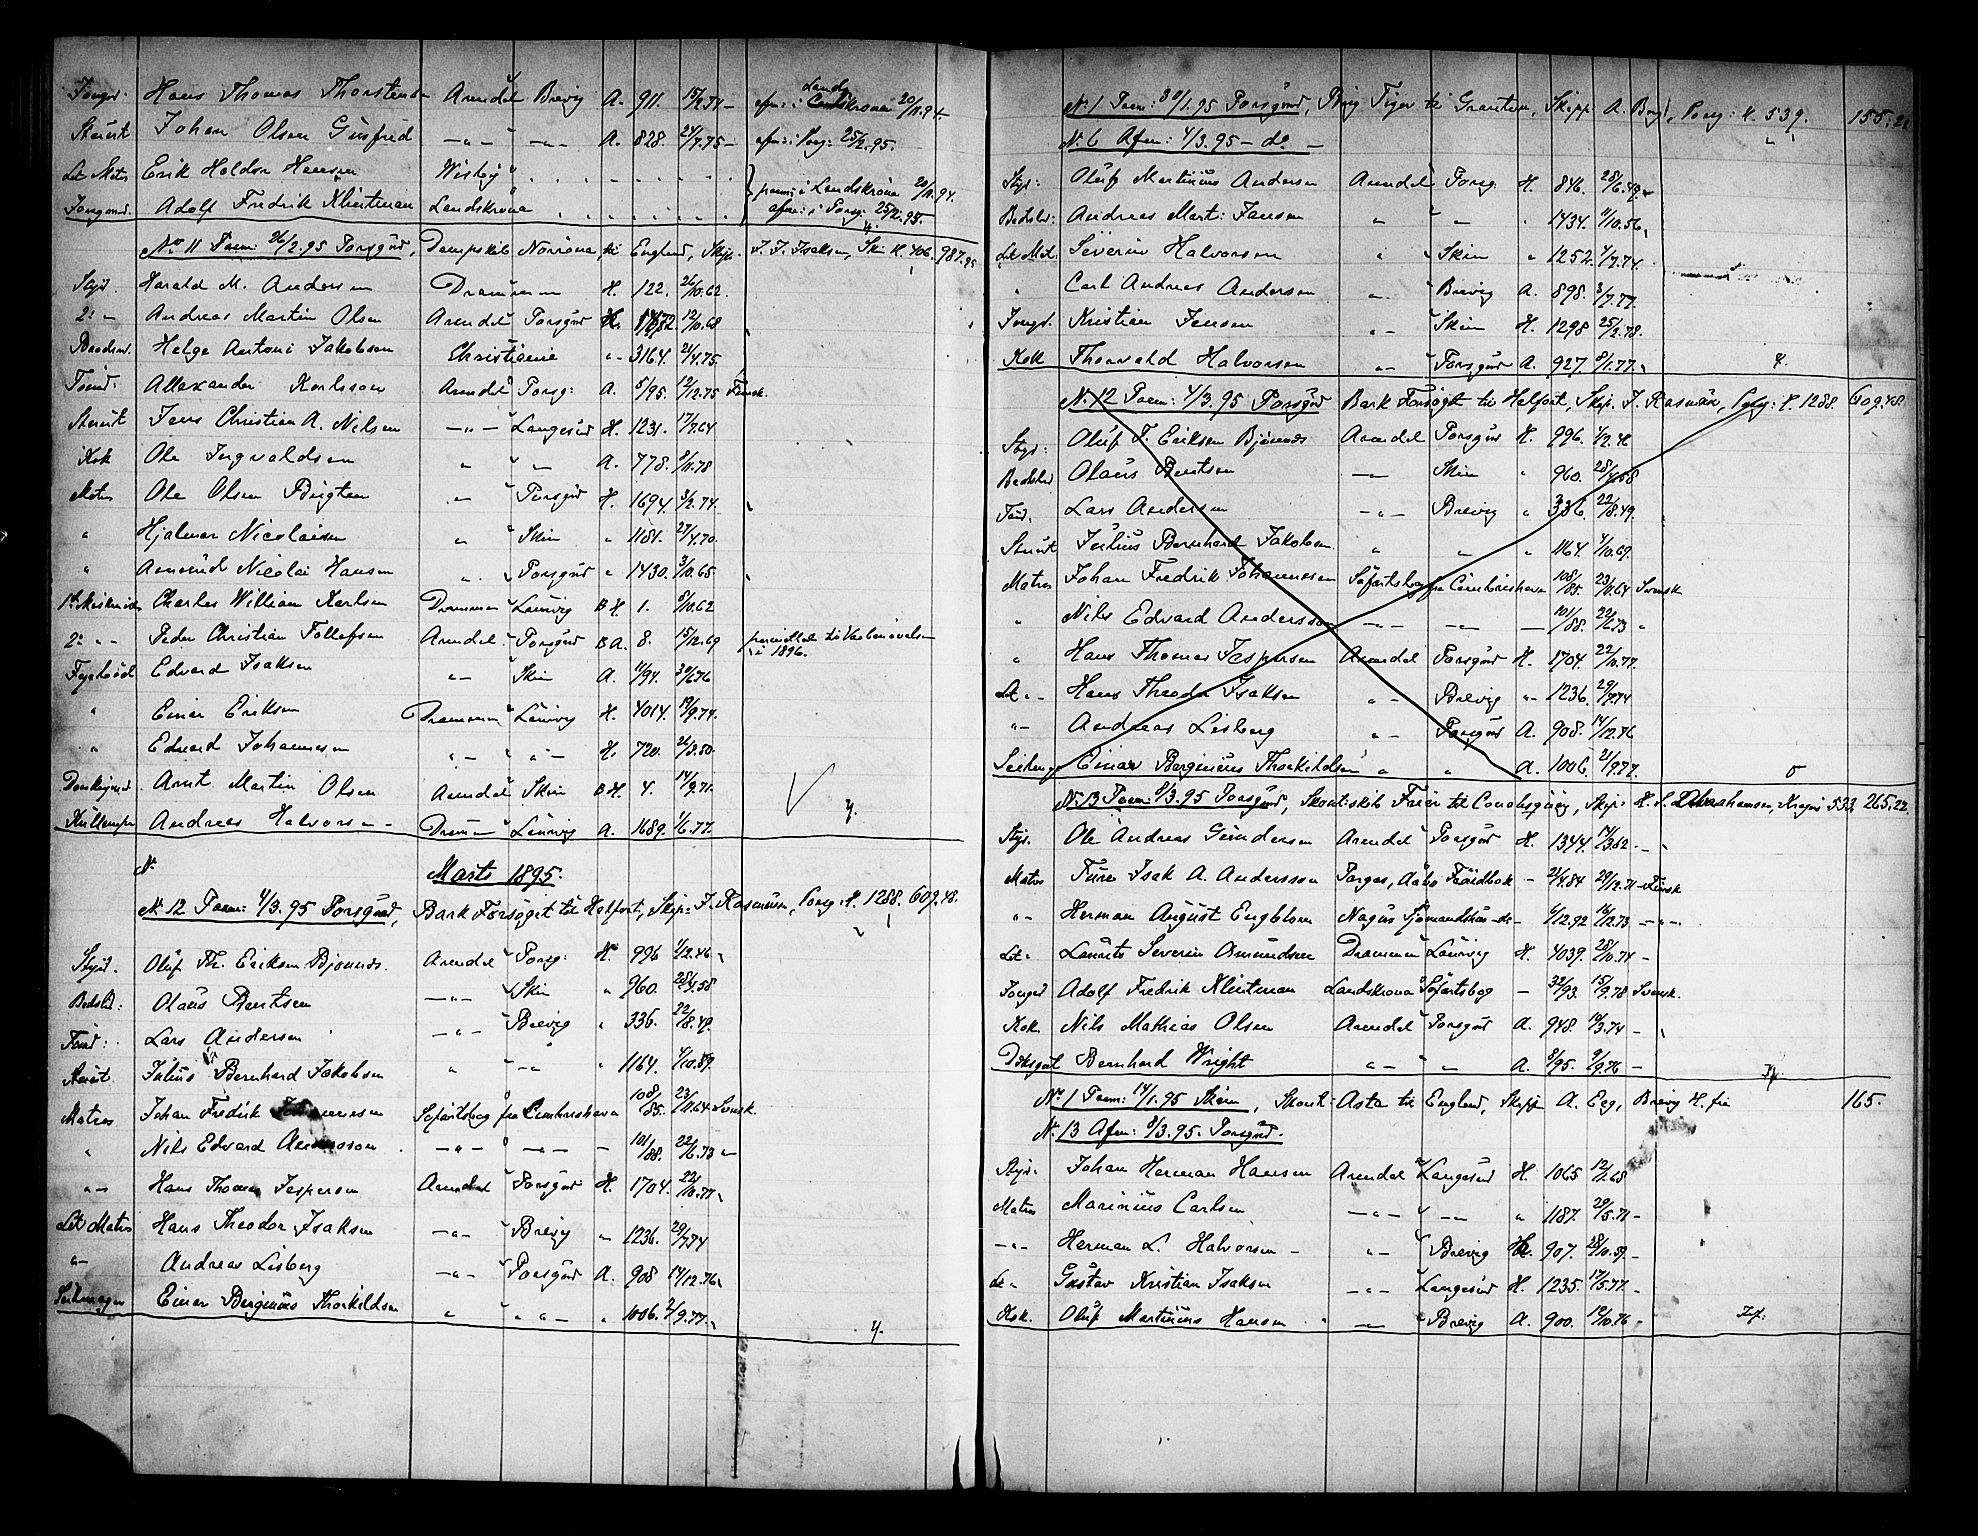 Jungd. Hans Thomas Thorstensen Arendal Brevig A. 911. 15/2.74 – afm: i Landskrona 20/11.94
Stuert Johan Olsen Gusfred –"– –"– A. 828. 24/7.75 – afm: i Porsg: 25/2.95.
Let Matr Erik Holdor Hansen Wisby
Jungmd. Adolf Fredrik Klintman Landskrona paam: i Landskrona 20/11.94. afm: i Porsg: 25/2.95.
No 11 Paam: 26/2.95 Porsgrd, Dampskib Norrøna, til England, Skip. J. J. Isaksen, Skin H. 406. 987.95
Styd. Harald M. Andersen Drammen H. 122. 26/10.62.
2: " Andreas Martin Olsen Arendal Porsgrd H. 1472 12/10.68
Baadsm. Helge Antoni Jakobsen Christiania "- 3164. 21/4.75.
Tømd. Allexander Karlsson Arendal Porsg: A. 5/95. 12/12.75 Finsk.
Stuert Jens Christian A. Nilsen –"– Langesud H. 1231. 17/7.64
Kok Ole Ingvaldsen " " A. 778. 8/10.78
Matros Ole Olsen Bugten " Porsgrd H. 1694. 3/2.74.
" Hjalmar Nicolaisen " Skin " 1181. 27/4.70.
" Amund Nicolai Hansen " Porsgrd " 1430. 3/10.65
1ste Maskinist Charles William Karlsen Drammen Laurvig B H. 1. 8/10.62
2: " - Peder Christian Tollefsen Arendal Porsgrd B A. 8. 15/12.69
i 1896.
Fyrbød Edvard Isaksen "- Skin A. 11/94. 30/6.76
" Einar Eriksen Drammen Laurvig H. 4014. 19/9.74.
" Edvard Johannesen "- " " – H. 720. 21/3.50.
Donkeymd Arnt Martin Olsen Arendal Skin B H. 4. 14/9.71.
Kullemper Andreas Halvorsen – Drammen Laurvig A. 1689. 1/6.77. H.
N.
Marts 1895.
N. 12 Paam: 4/3.95 Porsgrd, Bark Forsøget til Halfort, Skip: J. Rasmusen, Porsg: H. 1288. 609.48.
Styd. Oluf Th. Eriksen Bjønnes. Arendal Porsg: H. 996 1/12.46
Bedslm: Olaus Bentsen –"– Skin " 960. 28/4.58
Tømd: Lars Andersen –"– Brevig " 336. 22/8.49.
Stuert Julius Bernhard Jakobsen " –"– " 1164. 4/10.69.
Matros Johan Fredrik Johannesen Søfartsbog fra Cimbrishavn 108/85. 23/10.64 Svensk.
" Nils Edvard Andersson –"– –"– – 101/88. 22/6.73 "
"– Hans Thomas Jespersen Arendal Porsgrd H. 1704. 22/10.77.
Let Matros Hans Theodor Isaksen –"– Brevig " 1236. 29/7.74
"– Andreas Lisberg –"– Porsgrd A. 908 14/12.76
Seilmager Einar Berginius Thorkildsen " " " – " 1006. 21/9.77. H.
N. 1 Paam: 30/1.95 Porsgrund, Brig Tiger til Granton, Skipp A. Berg, Porsg: H. 539. 155.22
N. 6 Afm: 4/3.95 – do –
Styd: Oluf Martinius Andersen Arendal Porsg. H. 846. 28/6.49
Bedslm: Andreas Mart: Jansen " " – " 1434. 11/10.56
Let Mat. Severin Halvorsen " Skin " 1252. 1/9.74.
" Carl Andreas Andersen "– Brevig A. 898. 3/7.77.
Jungd. Kristian Jensen "– Skin H. 1298 25/2.78.
Kok Thorvald Halvorsen "– Porsgrd A. 927 8/1.77. H.
N. 12 Paam: 4/3.95 Porsgrd Bark Forsøgt til Halfort, Skip. J. Rasmusen, Porsg: H. 1288. 609.48.
Styd: Oluf T. Eriksen Bjønnes Arendal Porsgrd H. 996. 1/12.46
Bedslm Olaus Bentsen –"– Skin " 960. 28/4.58
Tømd. Lars Andersen –"– Brevig " 336. 22/8.49.
Stuert Julius Bernhard Jakobsen " " " 1164. 4/10.69.
Matros Johan Fredrik Johannesen Søfartsbog fra Cimbrishavn 108/85. 23/10.64 Svensk
" Nils Edvard Andersson –"– –"– – 101/88. 22/6.73 "
" Hans Thomas Jespersen Arendal Porsgrd H. 1704. 22/10.77.
Let "– Hans Theodor Isaksen "– Brevig "– 1236. 29/7.74
"– Andreas Lisberg "– Porsgrd A. 908. 14/12.76
Seilmager Einar Berginius Thorkildsen " " A. 1006. 21/9.77. 0
N. 13 Paam: 8/3.95 Porsgrd, Skontskib Freir til Conahsquay, Skip: H. S. Abrahamsen, Kragerø 533, 265.22.
Styd. Ole Andreas Gundersen Arendal Porsgrd H. 1344. 17/3.62 –
Matros Ture Isak A. Andersson Pargas, Åabo – 21/4.84 29/12.71 – Finsk
"– Herman August Engblom Nagus – 6/12.92 16/12.73 –"–
Let " Laurits Severin Amundsen Drammen Laurvig H. 4039. 28/10.74 –
Jungd Adolf Fredrik Klintman Landskrona Søfartsbog – 32/93. 15/9.78 Svensk.
Kok Nils Mathias Olsen Arendal Porsgrd A. 948. 19/3.74 –
Bernhard Wright "– " A. 8/95. 9/9.76 –
No 1 Paam: 14/1.95 Skien, Skont: Asta til England, Skipp A. Eeg, Brevig H. fra 165.
N. 13 Afm: 8/3.95. Porsgrd.
Styd. Johan Herman Hansen Arendal Langesud H. 1065 12/1.68
Matros Marinius Carlsen –"– –"– " 1187. 29/5.71 –
–"– Herman L. Halvorsen – "– Brevig H. 907. 28/10.59 –
Let " Gustav Kristian Isaksen –"– Langesud H. 1235. 17/5.77. –
Kok. Oluf Martinius Hansen –"– Brevig A. 900. 10/10.76 –